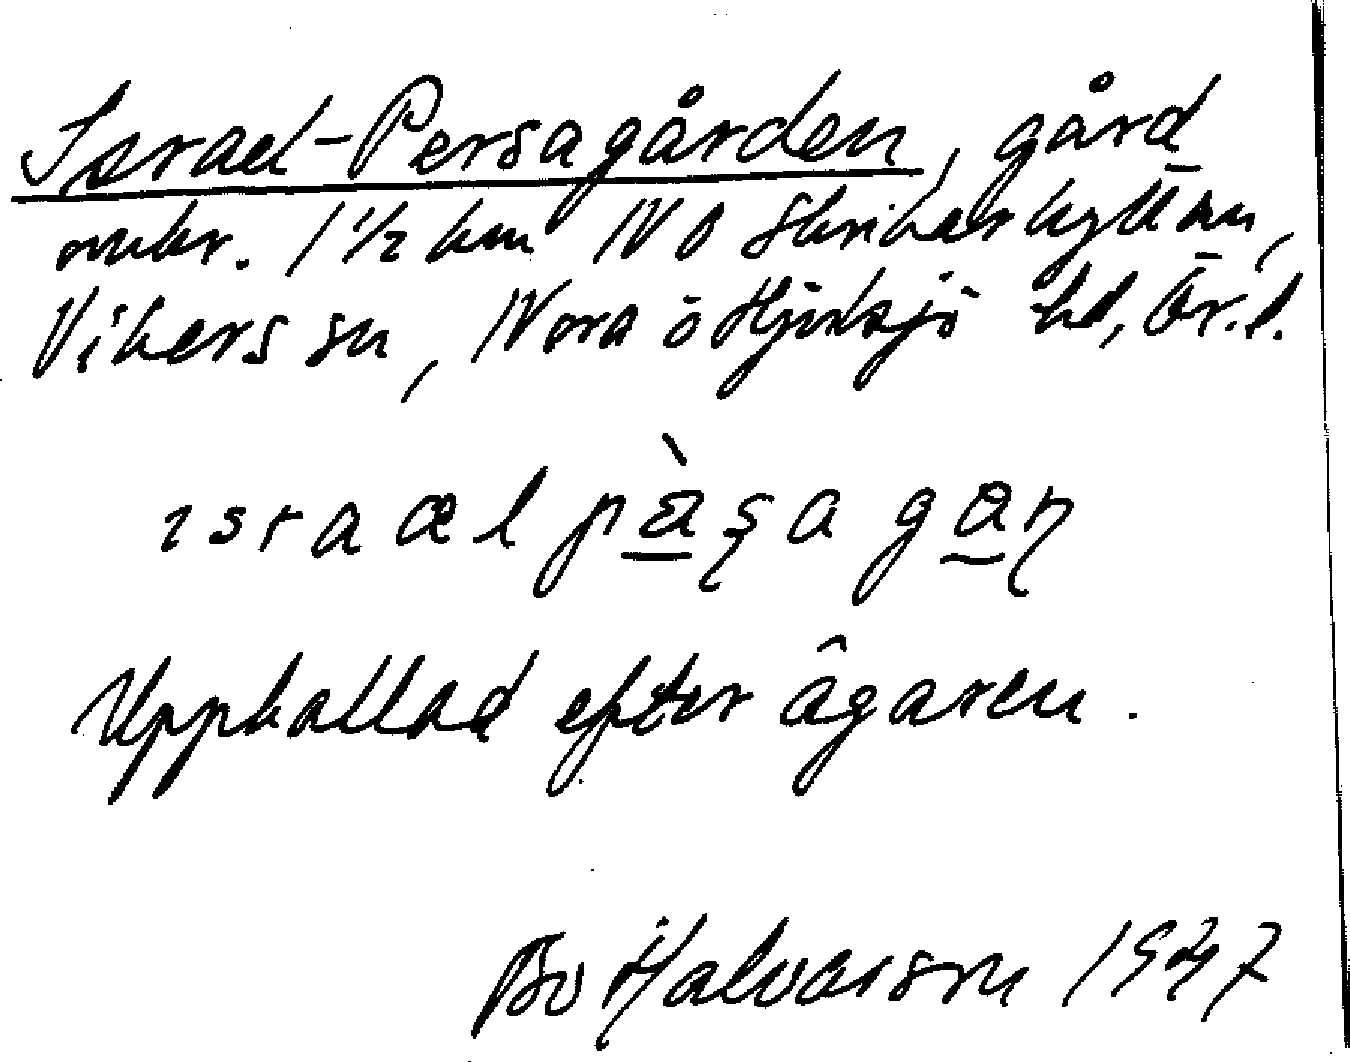 Israel-Persagården, gård
omkr. 1 1/2 km NO Skrikarhyttan,
Vikers sn, Nora ō Hjulsjö hd, Ör. l.
ısraæl pà̱şa ga̱ɳ
Uppkallad efter ägaren.
Bo Halvarson 1947